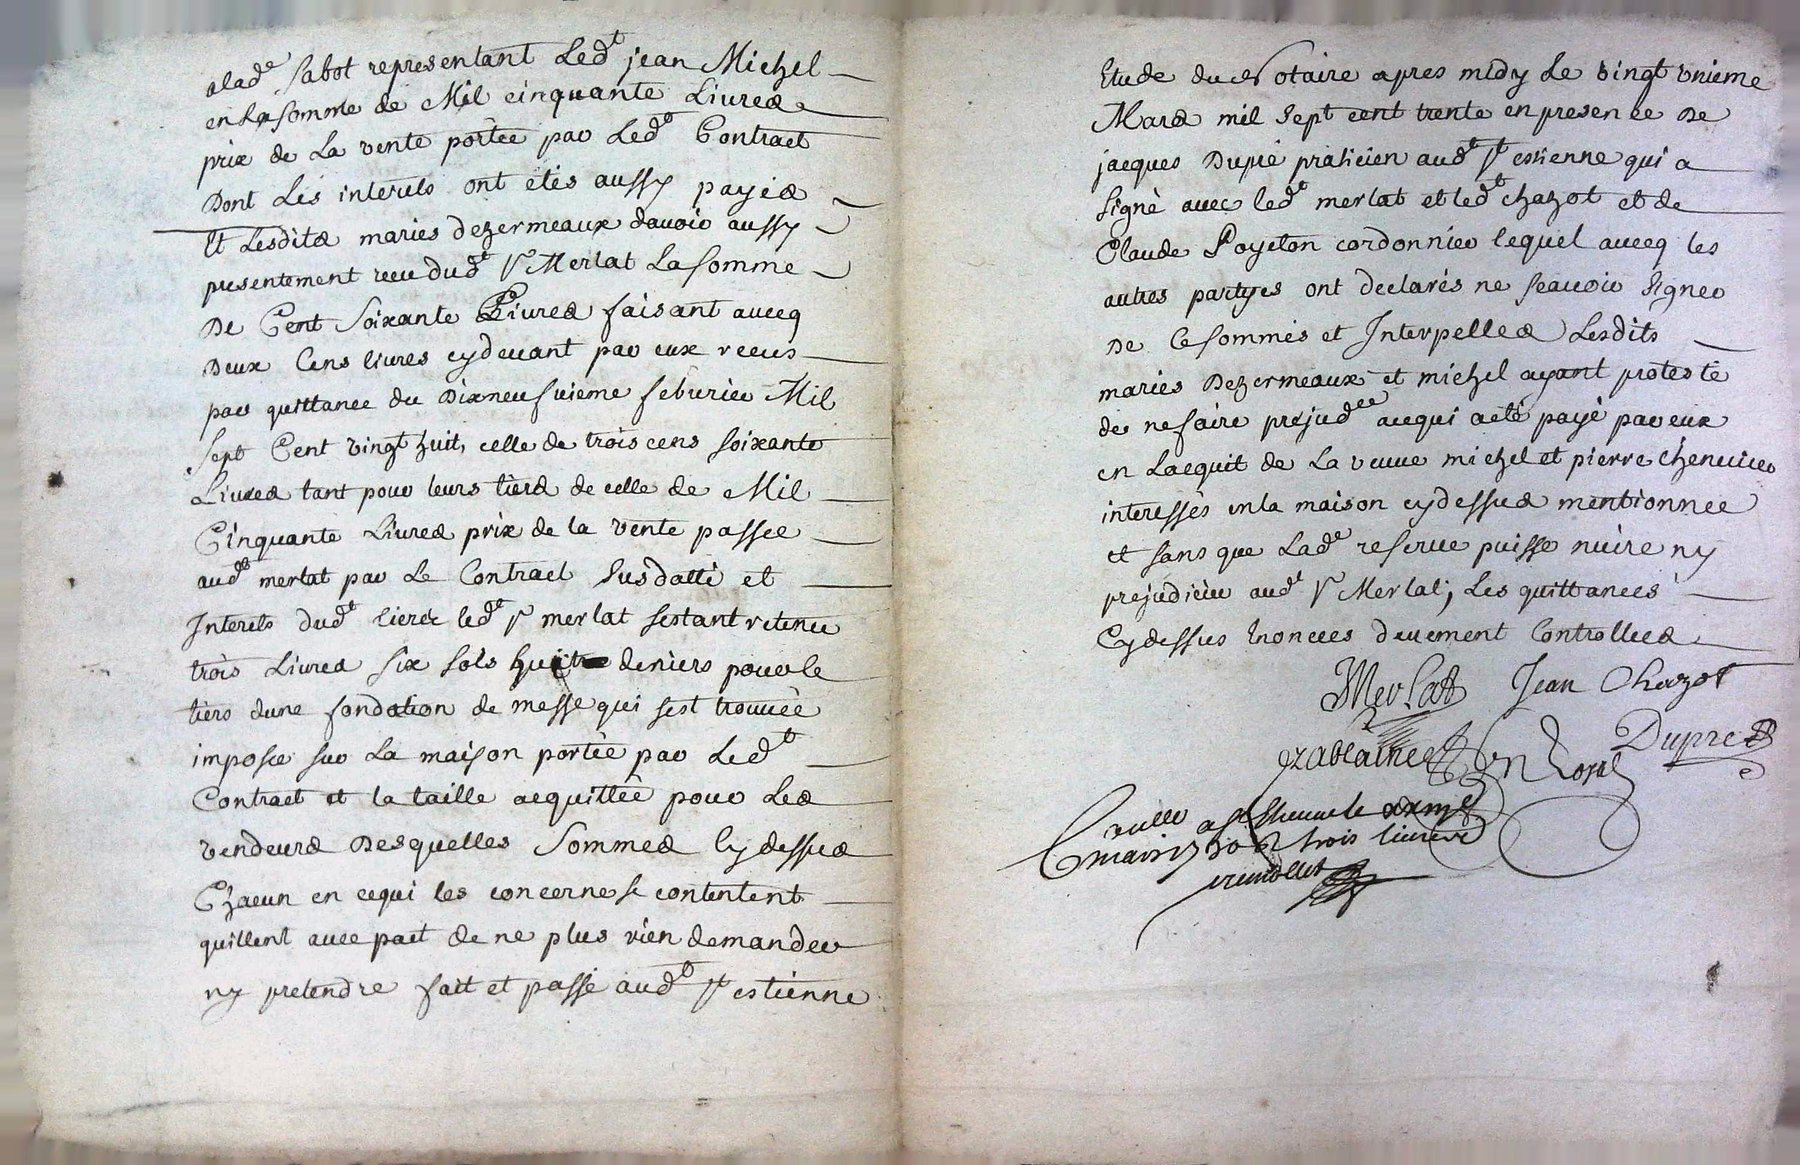 alad.e Sabot representant Led.t jean Michel
en La somme de Mil cinquante Livres
prix de La vente portée par Led.t Contract
Dont Les interets ont étés aussy payés
Et Lesdits mariés dezermeaux davoir aussy
presentement receu dud.t Sr Merlat La somme
De Cent Soixante Livres faisant avecq
Deux Cens livres cydevant par eux receus
par quittance du Dixneufvieme febvrier Mil
Sept Cent vingt huit, celle de trois cens soixante
Livres tant pour leurs tiers de celle de Mil
Cinquante Livres prix de la vente passée
aud.t merlat par Le Contract Susdatté et
Interets dud.t tierée led.t Sr merlat sestant retenu
trois Livres six sols huit deniers pour le
tiers dune fondation de messe qui sest trouvée
imposée sur La maison portée par Led.t
Contract et la taille acquittée pour Les
vendeurs Desquelles Sommes Cydessus
Chacun en cequi les concerne se contentent
quittent avec pact de ne plus rien demander
ny pretendre fait et passé aud.t St estienne
Etude du Notaire apres midy Le vingt unieme
Mars mil Sept cent trente en presence De
jacques Dupré praticien aud.t St estienne qui a
Signé avec led.t merlat et led.t chazot et de
Claude Poyeton cordonnier lequel avecq les
autres partyes ont declarés ne scavoir Signer
De Ce sommés et Interpellés Lesdits
mariés Dezermeaux et michel ayant protesté
de ne faire prejud.ce acequi a eté payé par eux
en Lacquit de La veuve michel et pierre Chenevier
interessés en la maison cydessus mentionnée
et sans que Lad.e reserve puisse nuire ny
prejudicier aud.t Sr Merlat; Les quittances
Cydessus Enoncées deuement Controllées
Merlat Jean Chazot
Dupré
a St Etienne le
mars 1730 trois livres